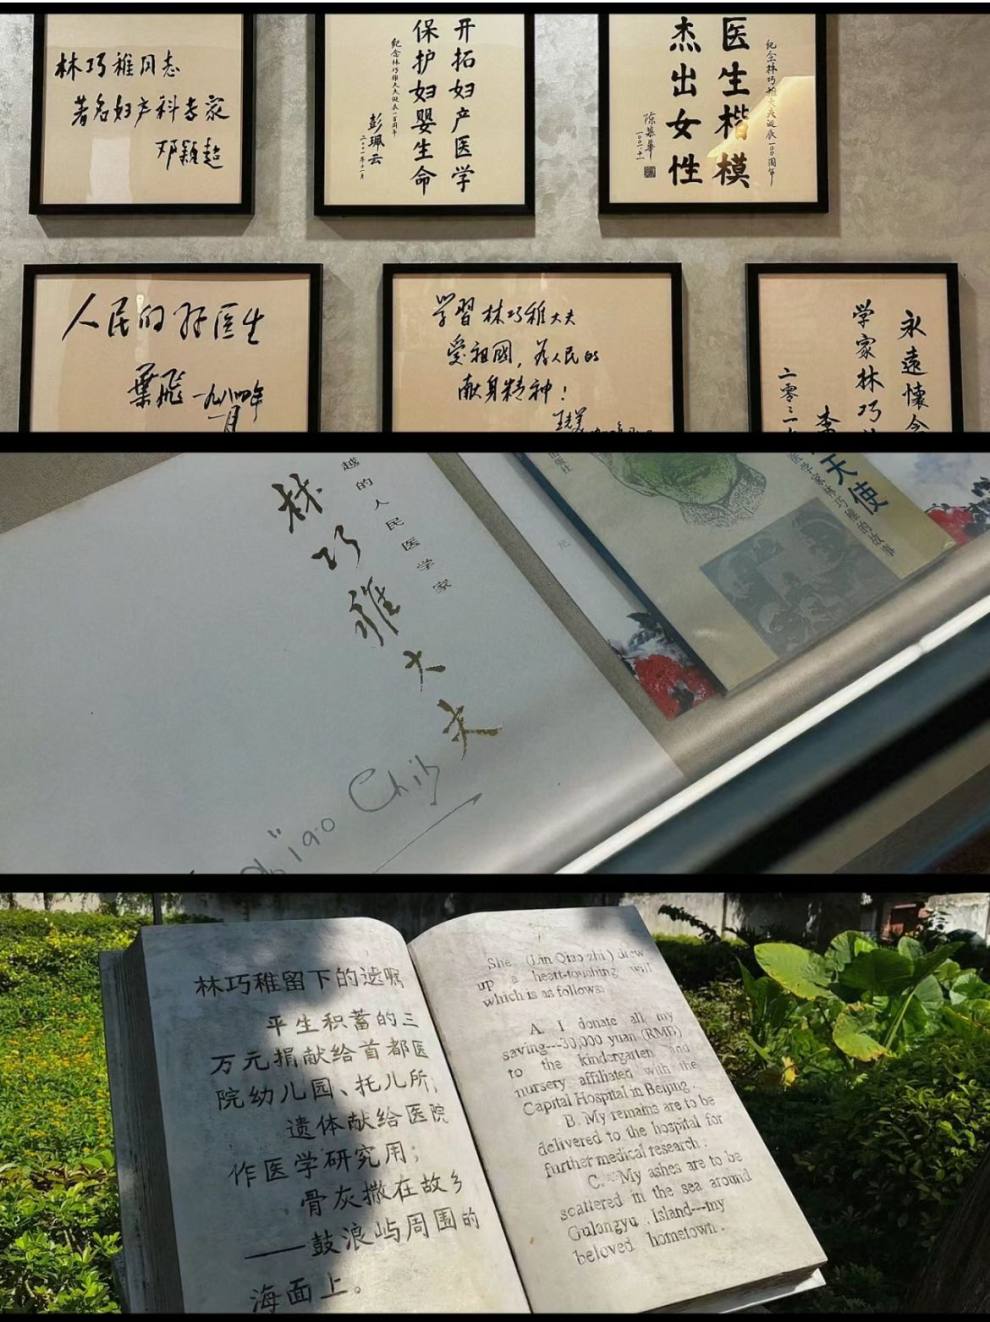 林巧稚同志
著名妇产科专家
邓颖超
开拓妇产医学
保护妇婴生命
纪念林巧稚大夫诞辰一百周年
彭珮云
二〇〇一年十一月
纪念林巧稚大夫诞辰100周年
医生楷模
杰出女性
陈慕华
人民的好医生
葉飞 一九八四年
月
学習林巧稚大夫
爱祖國,为人民的
献身精神!
永遠懷念
学家林巧
李
二零
越的人民医学家
林巧稚大夫
Chih
天使
医学家林巧稚的故事
林巧稚留下的遗嘱
平生积蓄的三
万元捐献给首都医
院幼儿园、托儿所;
遗体献给医院
作医学研究用;
骨灰撒在故乡
——鼓浪屿周围的
海面上。
She (Lin Qiao zhi) drew
up a heart-touching will
which is as follows:
A. I donate all my
saving---30,000 yuan (RMB)
to the kindergarten and
nursery affiliated with the
Capital Hospital in Beijing.
B. My remains are to be
delivered to the hospital for
further medical research.
C. My ashes are to be
scattered in the sea around
Gulangyu Island---my
beloved hometown.